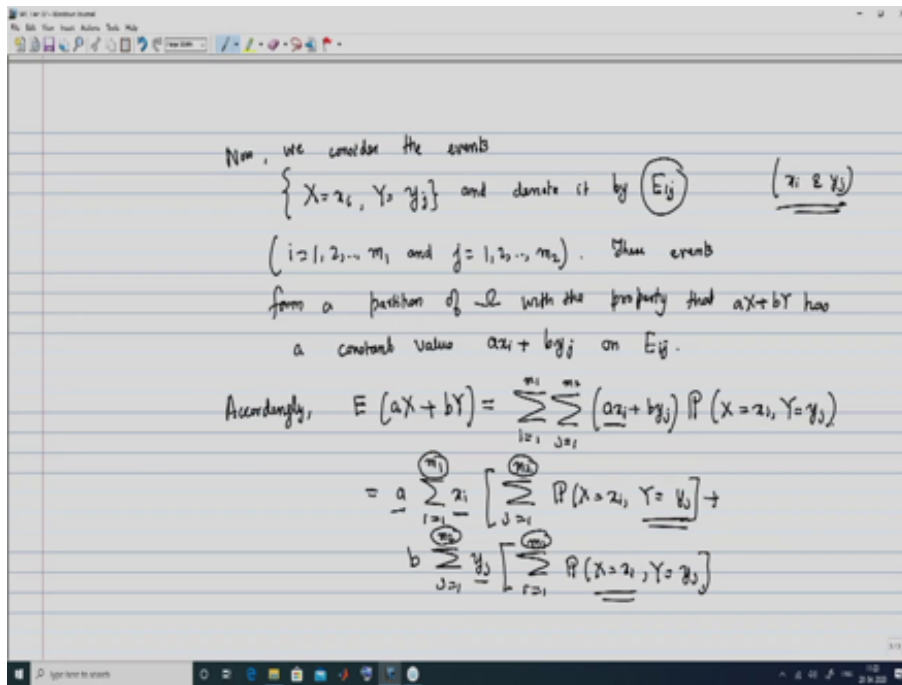 File Edit View Insert Actions Tools Help
Now, we consider the events
{ X = x_i, Y = y_j } and denote it by E_ij (x_i & y_j)
(i = 1, 2, .., m_1 and j = 1, 2, .., m_2). These events
form a partition of Ω with the property that aX + bY has
a constant value ax_i + by_j on E_ij.
Accordingly, E (aX + bY) = Σ_{i=1}^{m_1} Σ_{j=1}^{m_2} (ax_i + by_j) ℙ (X = x_i, Y = y_j)
= a Σ_{i=1}^{m_1} x_i [ Σ_{j=1}^{m_2} ℙ (X = x_i, Y = y_j ] +
b Σ_{j=1}^{m_2} y_j [ Σ_{i=1}^{m_1} ℙ (X = x_i, Y = y_j ]
Type here to search